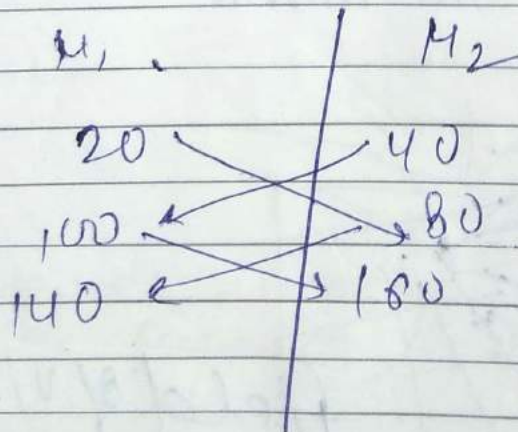 M₁ M₂
20 40
100 80
140 160